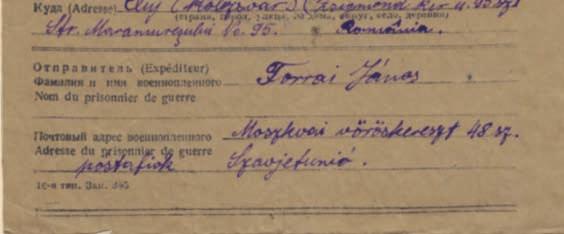 Куда (Adresse) Cluj (Kolozsvár) (Zsigmond kir u. 95 sz)
(страна, город, улица, № дома, округ, село, деревня)
Str. Maramureșului No. 95. România.
Отправитель (Expéditeur)
Фамилия и имя военнопленного Torrai János
Nom du prisonnier de guerre
Почтовый адрес военнопленного Moszkvai vöröskereszt 48 sz.
Adresse du prisonnier de guerre
postafiók Szovjetunió.
16-я тип. Зак. 395